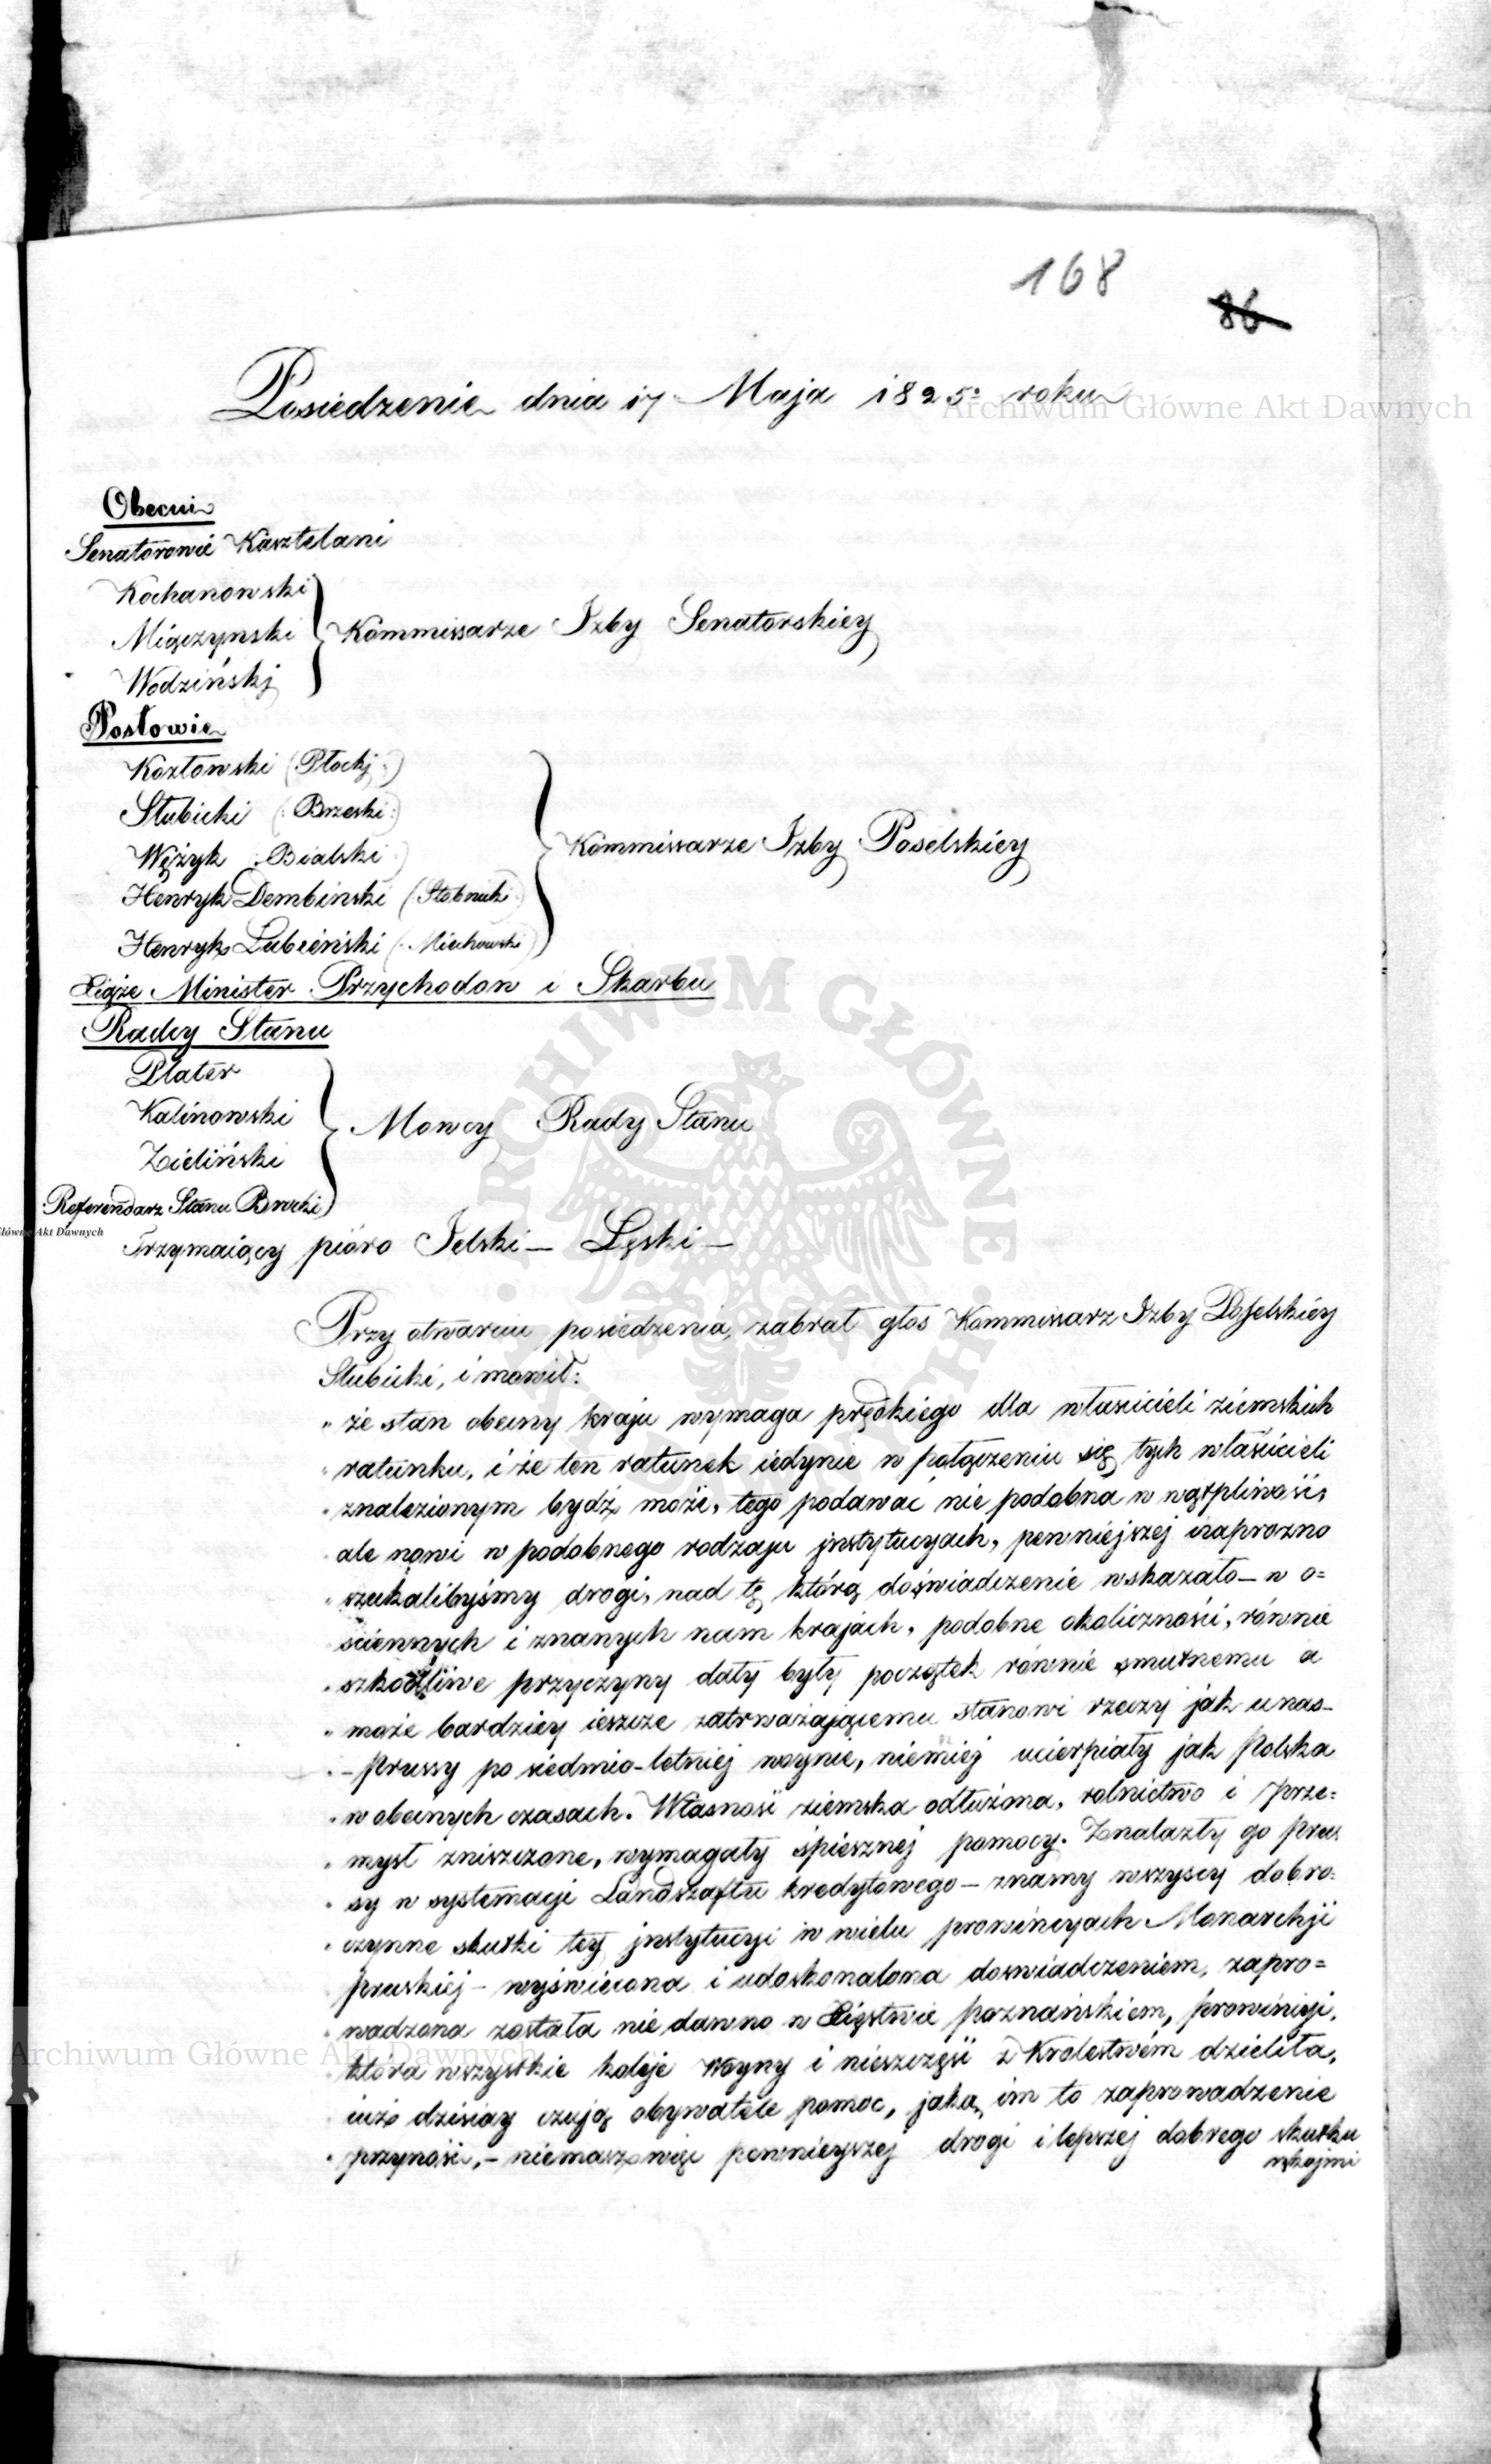 168
86
Posiedzenie dnia 17 Maja 1825º roku
Archiwum Główne Akt Dawnych
Obecni
Senatorowie Kasztelani
Kochanowski
Miączynski
Wodzińskj
Kommissarze Izby Senatorskiey
Posłowie
Kozłowski (Płockj)
Słubicki (: Brzeski :)
Wężyk (: Bialski :)
Henryk Dembinski (: Stobnicki :)
Henryk Lubieński (: Miechowski :)
Kommissarze Izby Poselskiey
Xiąże Minister Przychodow i Skarbu
Radcy Stanu
Plater
Kalinowski
Zieliński
Referendarz Stanu Brocki
Mowcy Rady Stanu
Główne Akt Dawnych
Trzymaiący pióro Jelski — Łęski —
ARCHIWUM GŁÓWNE AKT DAWNYCH
Przy otwarciu posiedzenia, zabrał głos Kommissarz Izby Poselskiey
Słubicki, i mowił:
" że stan obecny kraju wymaga prędkiego dla właścicieli ziemskich
" ratunku, i że ten ratunek iedynie w połączeniu się tych właścicieli
" znalezionym bydź może, tego podawać nie podobna w wątpliwość,
ale nowi w podobnego rodzaju jnstytucyach, pewniejszej naprozno
" szukalibyśmy drogi, nad tę którą doświadczenie wskazało — w o=
" sciennych i znanych nam krajach, podobne okoliczności, równie
" szkodliwe przyczyny dały były początek równie smutnemu a
" może bardziey ieszcze zatrważającemu stanowi rzeczy jak unas —
" — Prussy po siedmio-letniej woynie, niemiej ucierpiały jak Polska
" w obecnych czasach. Własność ziemska odłużona, rolnictwo i prze=
" mysł zniszczone, wymagały śpiesznej pomocy. Znalazły go Prus
" sy w systemacji Landszaftu kredytowego — znamy wszyscy dobro=
" czynne skutki tey jnstytucyi w wielu prowincyach Monarchji
" pruskiéj — wyświecona i udoskonalona doswiadczeniem, zapro=
" wadzona została nie dawno w Xięstwie poznańskiem, prowincji,
" która wszystkie koleje woyny i nieszczęść z Krolestwém dzieliła,
Archiwum Główne Akt Dawnych
" iuż dzisiay czują obywatele pomoc, jaką im to zaprowadzenie
" przynosi, — niemasz więc pewnieyszej drogi i lepszej dobrego skutku